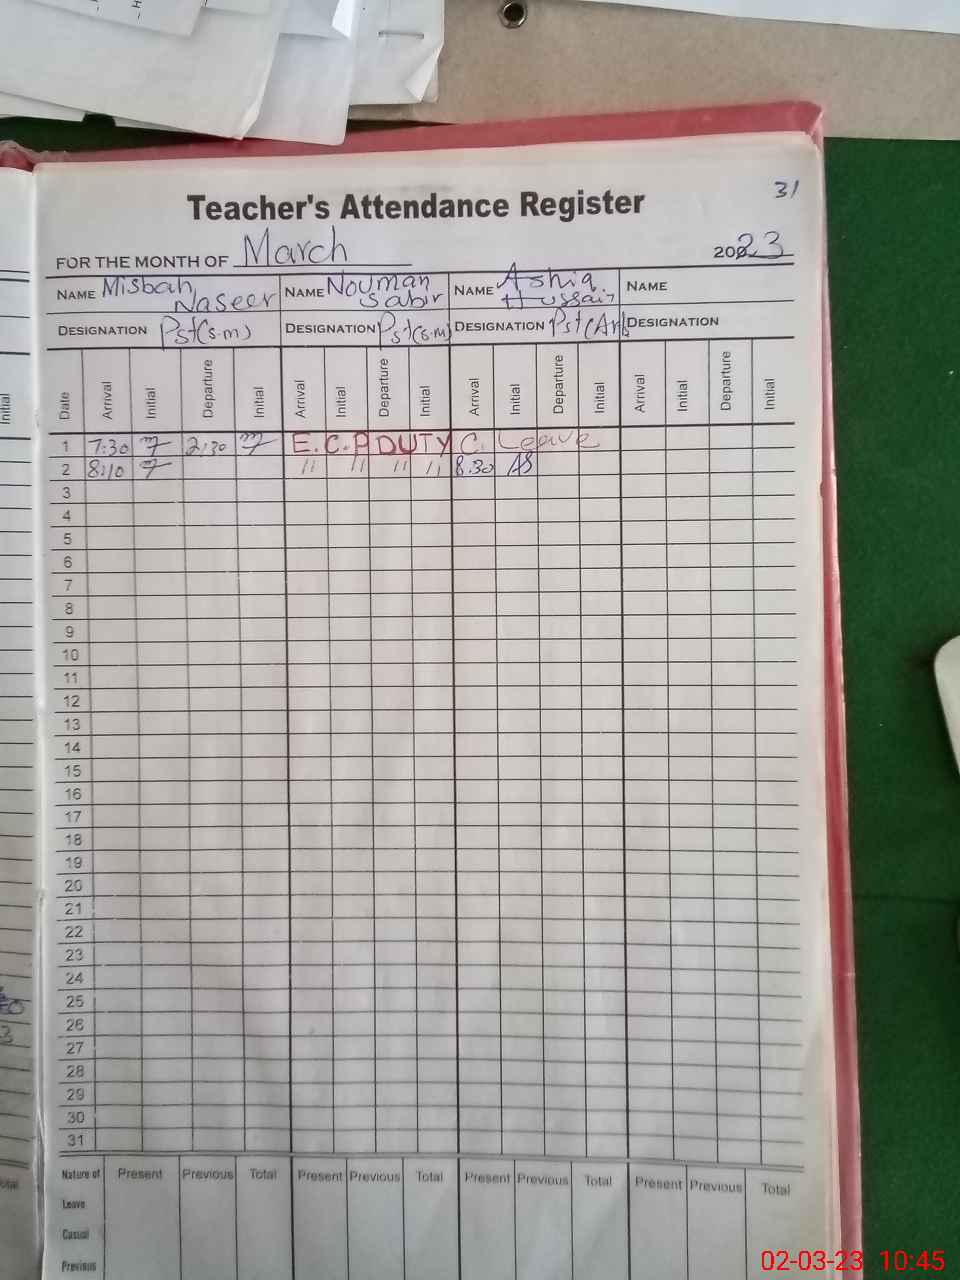 31
Teacher's Attendance Register
FOR THE MONTH OF March 2023
NAME Misbah Naseer NAME Nouman Sabir NAME Ashiq Hussain NAME
DESIGNATION Pst(s.m) DESIGNATION Pst(s.m) DESIGNATION Pst(Arb DESIGNATION
Date Arrival Initial Departure Initial Arrival Initial Departure Initial Arrival Initial Departure Initial Arrival Initial Departure Initial
1 7:30 2:30 E.C.P DUTY C. Leave
2 8:10 " " " " 8:30 AS
3
4
5
6
7
8
9
10
11
12
13
14
15
16
17
18
19
20
21
22
23
24
25
26
27
28
29
30
31
Nature of Present Previous Total Present Previous Total Present Previous Total Present Previous Total
Leave
Casual
Previous
02-03-23 10:45